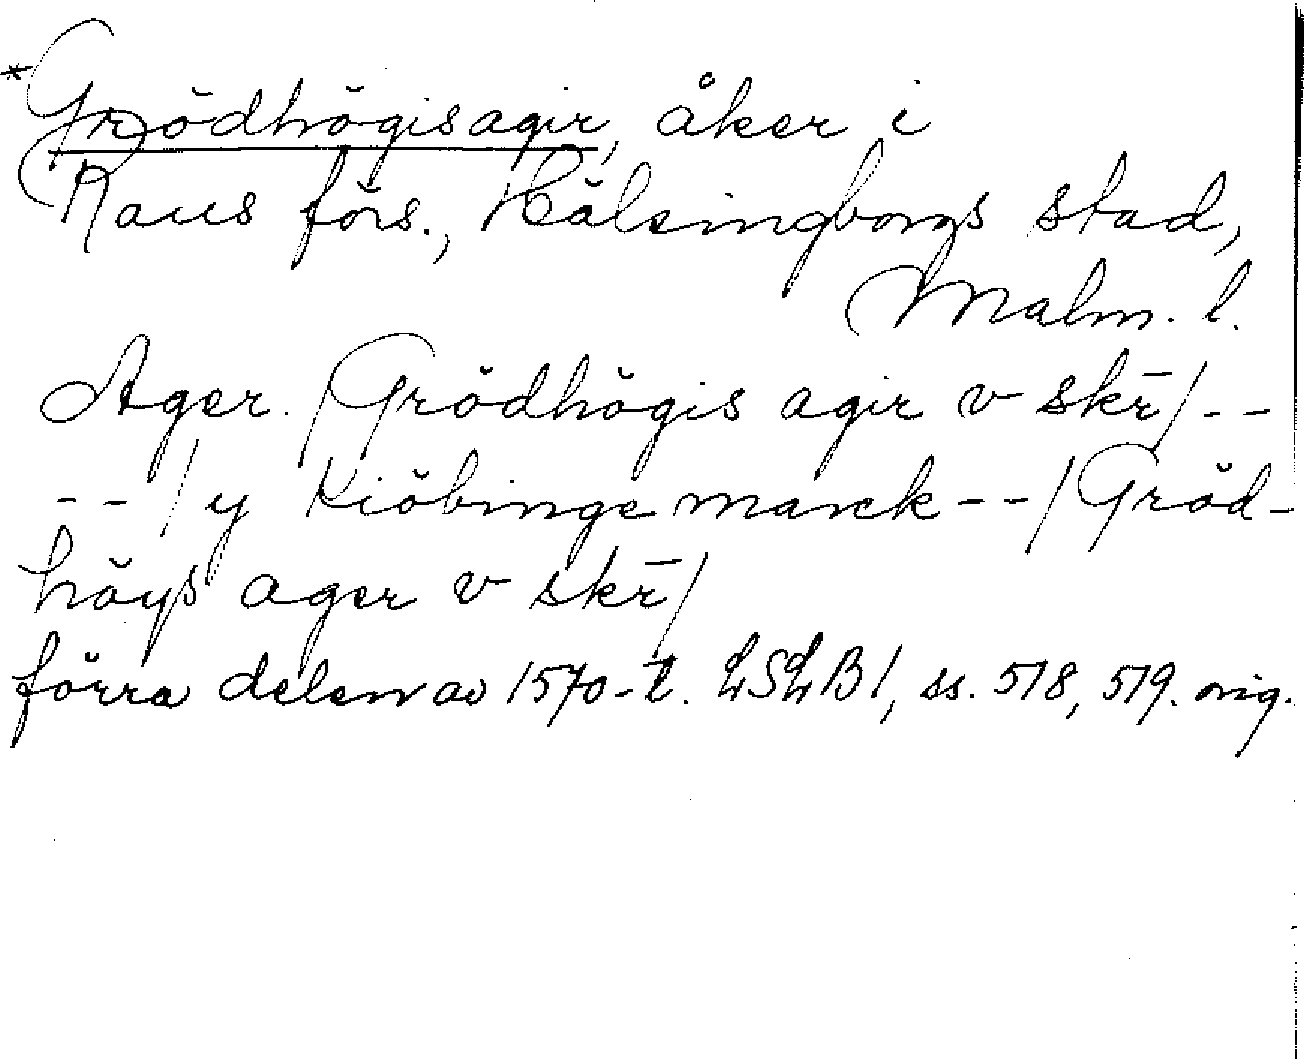 *Grödhögisagir, åker i
Raus förs., Hälsingborgs stad,
Malm. l.
Ager. /Grödhögis agir v skr̄/--
--/y Kiöbinge marck--/Gröd-
höys ager v skr̄/
förra delen av 1570-t. LSLB1, ss. 518, 519. orig.